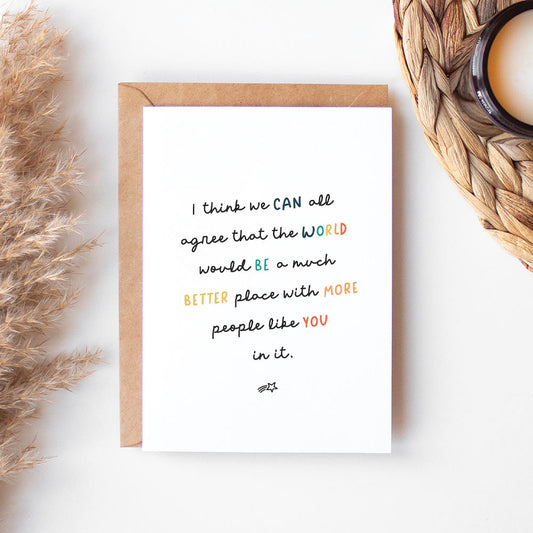 I think we CAN all
agree that the WORLD
would BE a much
BETTER place with MORE
people like YOU
in it.